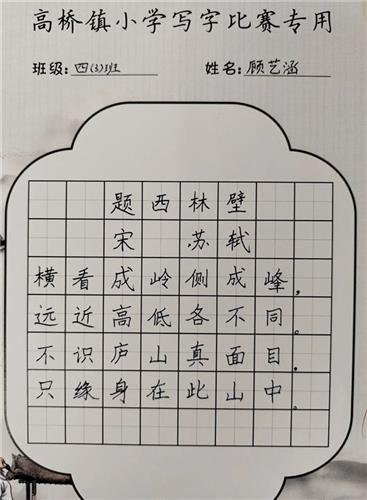 高桥镇小学写字比赛专用
班级:四(3)班 姓名:顾艺涵
题西林壁
宋 苏轼
横看成岭侧成峰,
远近高低各不同。
不识庐山真面目,
只缘身在此山中。